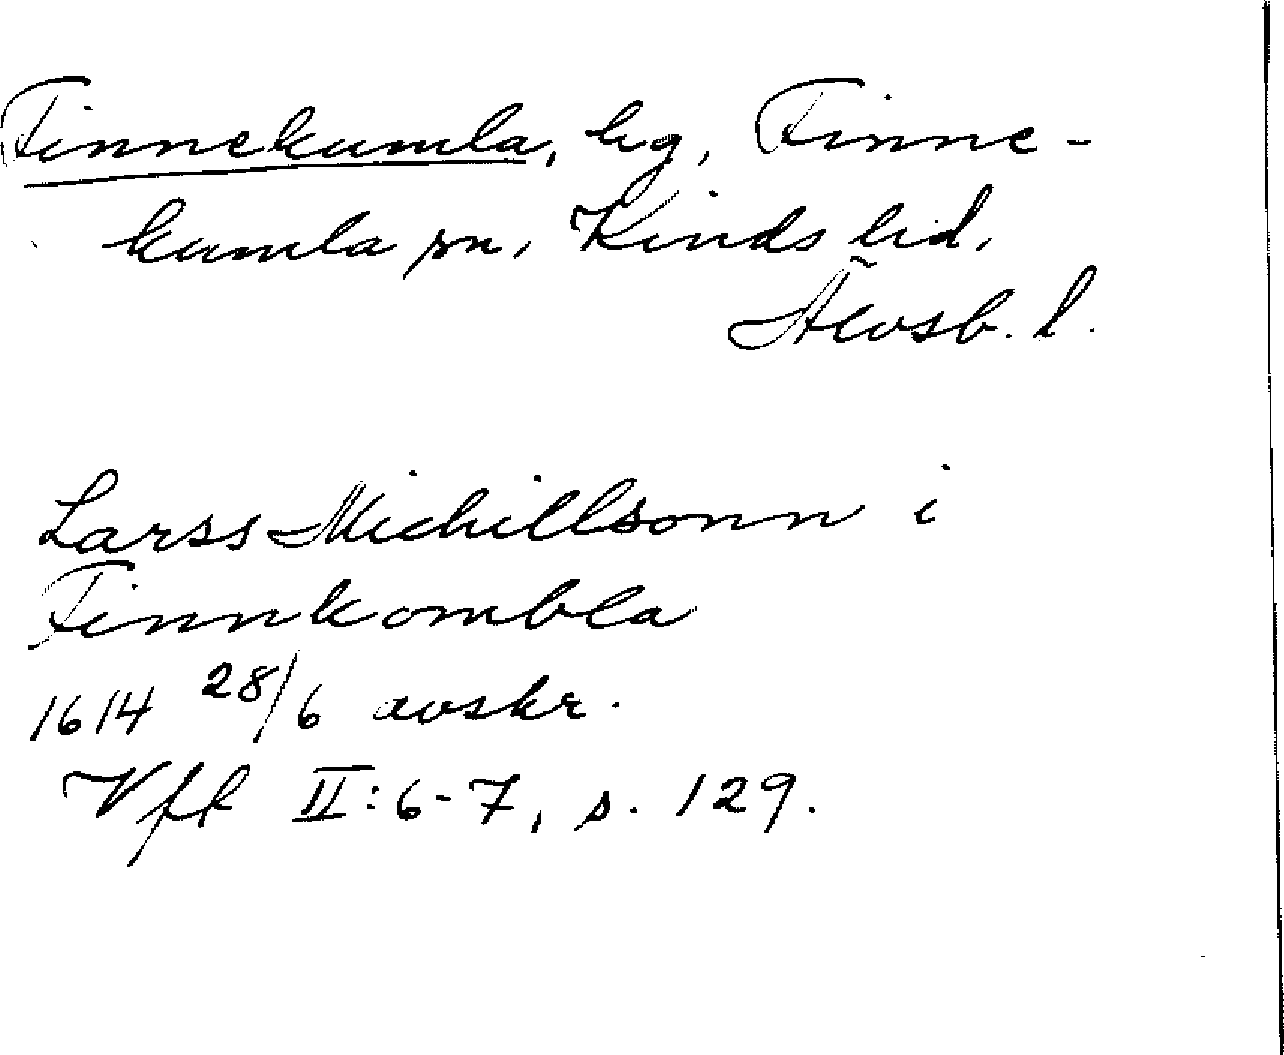 Finnekumla, hg, Finne-
kumla sn, Kinds hd,
Älvsb. l.
Larss Michillsonn i
Finnkombla
1614 28/6 avskr.
Vff II:6-7, s. 129.